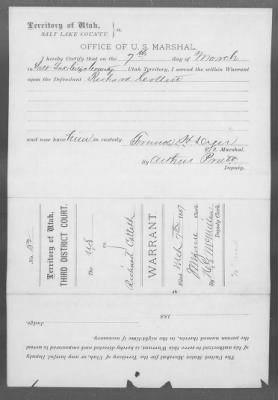 Territory of Utah,
SALT LAKE COUNTY.
ss.
OFFICE OF U. S. MARSHAL.
I hereby Certify that on the 7th day of March
in Salt Lake County, Utah Territory, I served the within Warrant
upon the Defendant Richard Collett
and now have him in custody.
Frank H. Dyer
U. S. Marshal.
By Arthur Pratt
Deputy.
No.
Territory of Utah,
THIRD DISTRICT COURT.
The U S
vs.
Richard Collett
WARRANT.
Filed Mch 7th 1887
Clerk.
By H. G. McMillan
Deputy Clerk.
The United States Marshal for the Territory of Utah, or any lawful Deputy
of his authorized to serve this Warrant, is hereby directed and empowered to arrest
the person named therein, in the night-time if necessary.
Judge.
188